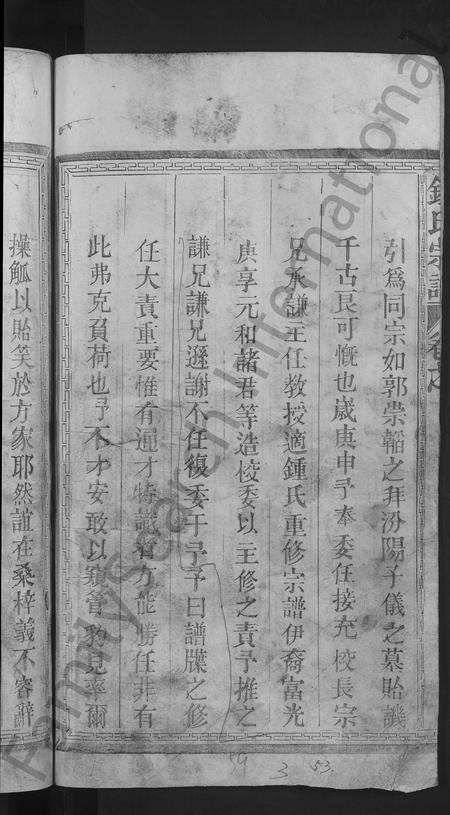 鍾氏宗譜 卷之
引爲同宗如郭崇韜之拜汾陽子儀之墓貽譏
千古良可慨也歲庚申予奉委任接充校長宗
兄承謙主任教授適鍾氏重修宗譜伊裔富光
庚享元和諸君等造校委以主修之責予推之
謙兄謙兄遜謝不任復委于予予曰譜牒之修
任大責重要惟有通才特識者方能勝任非有
此弗克負荷也予不才安敢以窺管豹見率爾
操觚以貽笑於方家耶然誼在桑梓義不容辭
FamilySearch International
59
3
53.